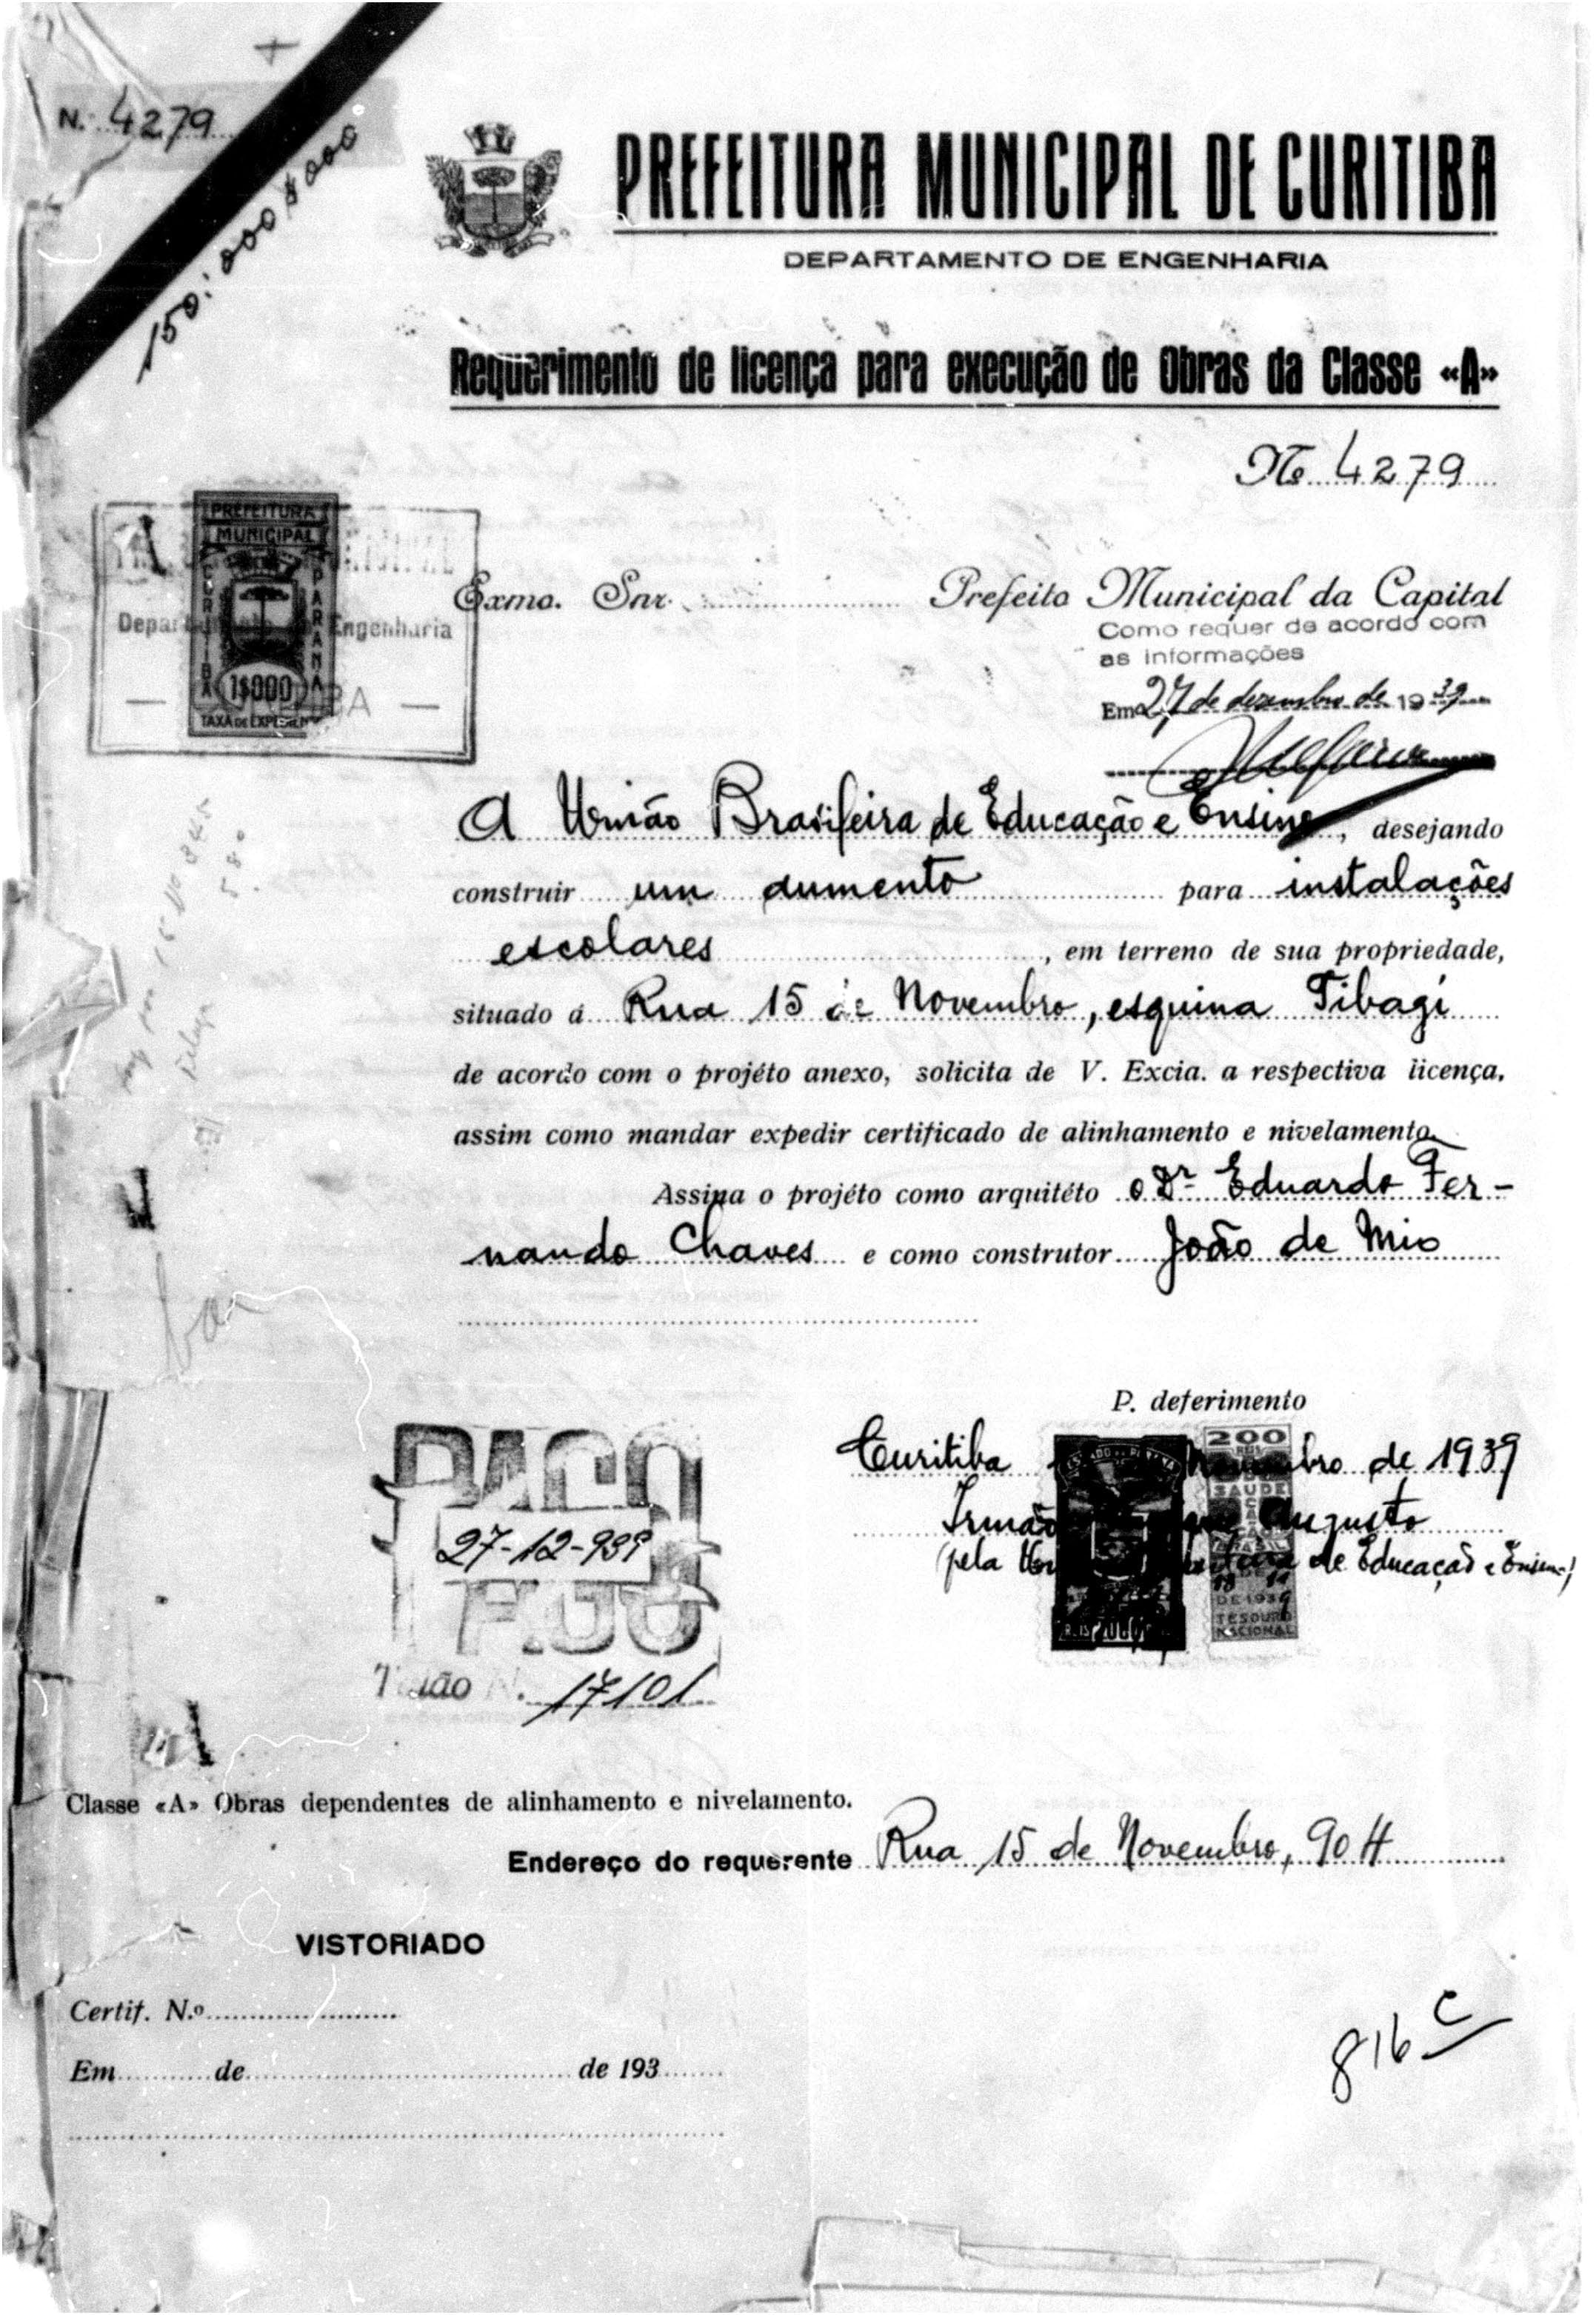 N. 4279
150:000$000
PREFEITURA MUNICIPAL DE CURITIBA
DEPARTAMENTO DE ENGENHARIA
Requerimento de licença para execução de Obras da Classe «A»
No 4279
PREFEITURA
MUNICIPAL
CURITIBA
PARANÁ
1$000
TAXA DE EXPEDIENTE
Departamento de Engenharia
Exmo. Snr. Prefeito Municipal da Capital
Como requer de acordo com
as informações
Em 27 de dezembro de 1939
A União Brasileira de Educação e Ensino, desejando
construir um aumento para instalações
escolares, em terreno de sua propriedade,
situado á Rua 15 de Novembro, esquina Tibagi
de acordo com o projéto anexo, solicita de V. Excia. a respectiva licença,
assim como mandar expedir certificado de alinhamento e nivelamento.
Assina o projéto como arquitéto o Dr. Eduardo Fer-
nando Chaves e como construtor João de Mio
P. deferimento
Curitiba bro de 1939
Irmão Augusto
(pela de Educação e Ensino)
200
SAUDE
BRASIL
DE 1939
TESOURO
NACIONAL
PAGO
27-12-939
PAGO
Talão N. 17101
Classe «A» Obras dependentes de alinhamento e nivelamento.
Endereço do requerente Rua 15 de Novembro, 904
VISTORIADO
Certif. N.º
Em de de 193
816 C